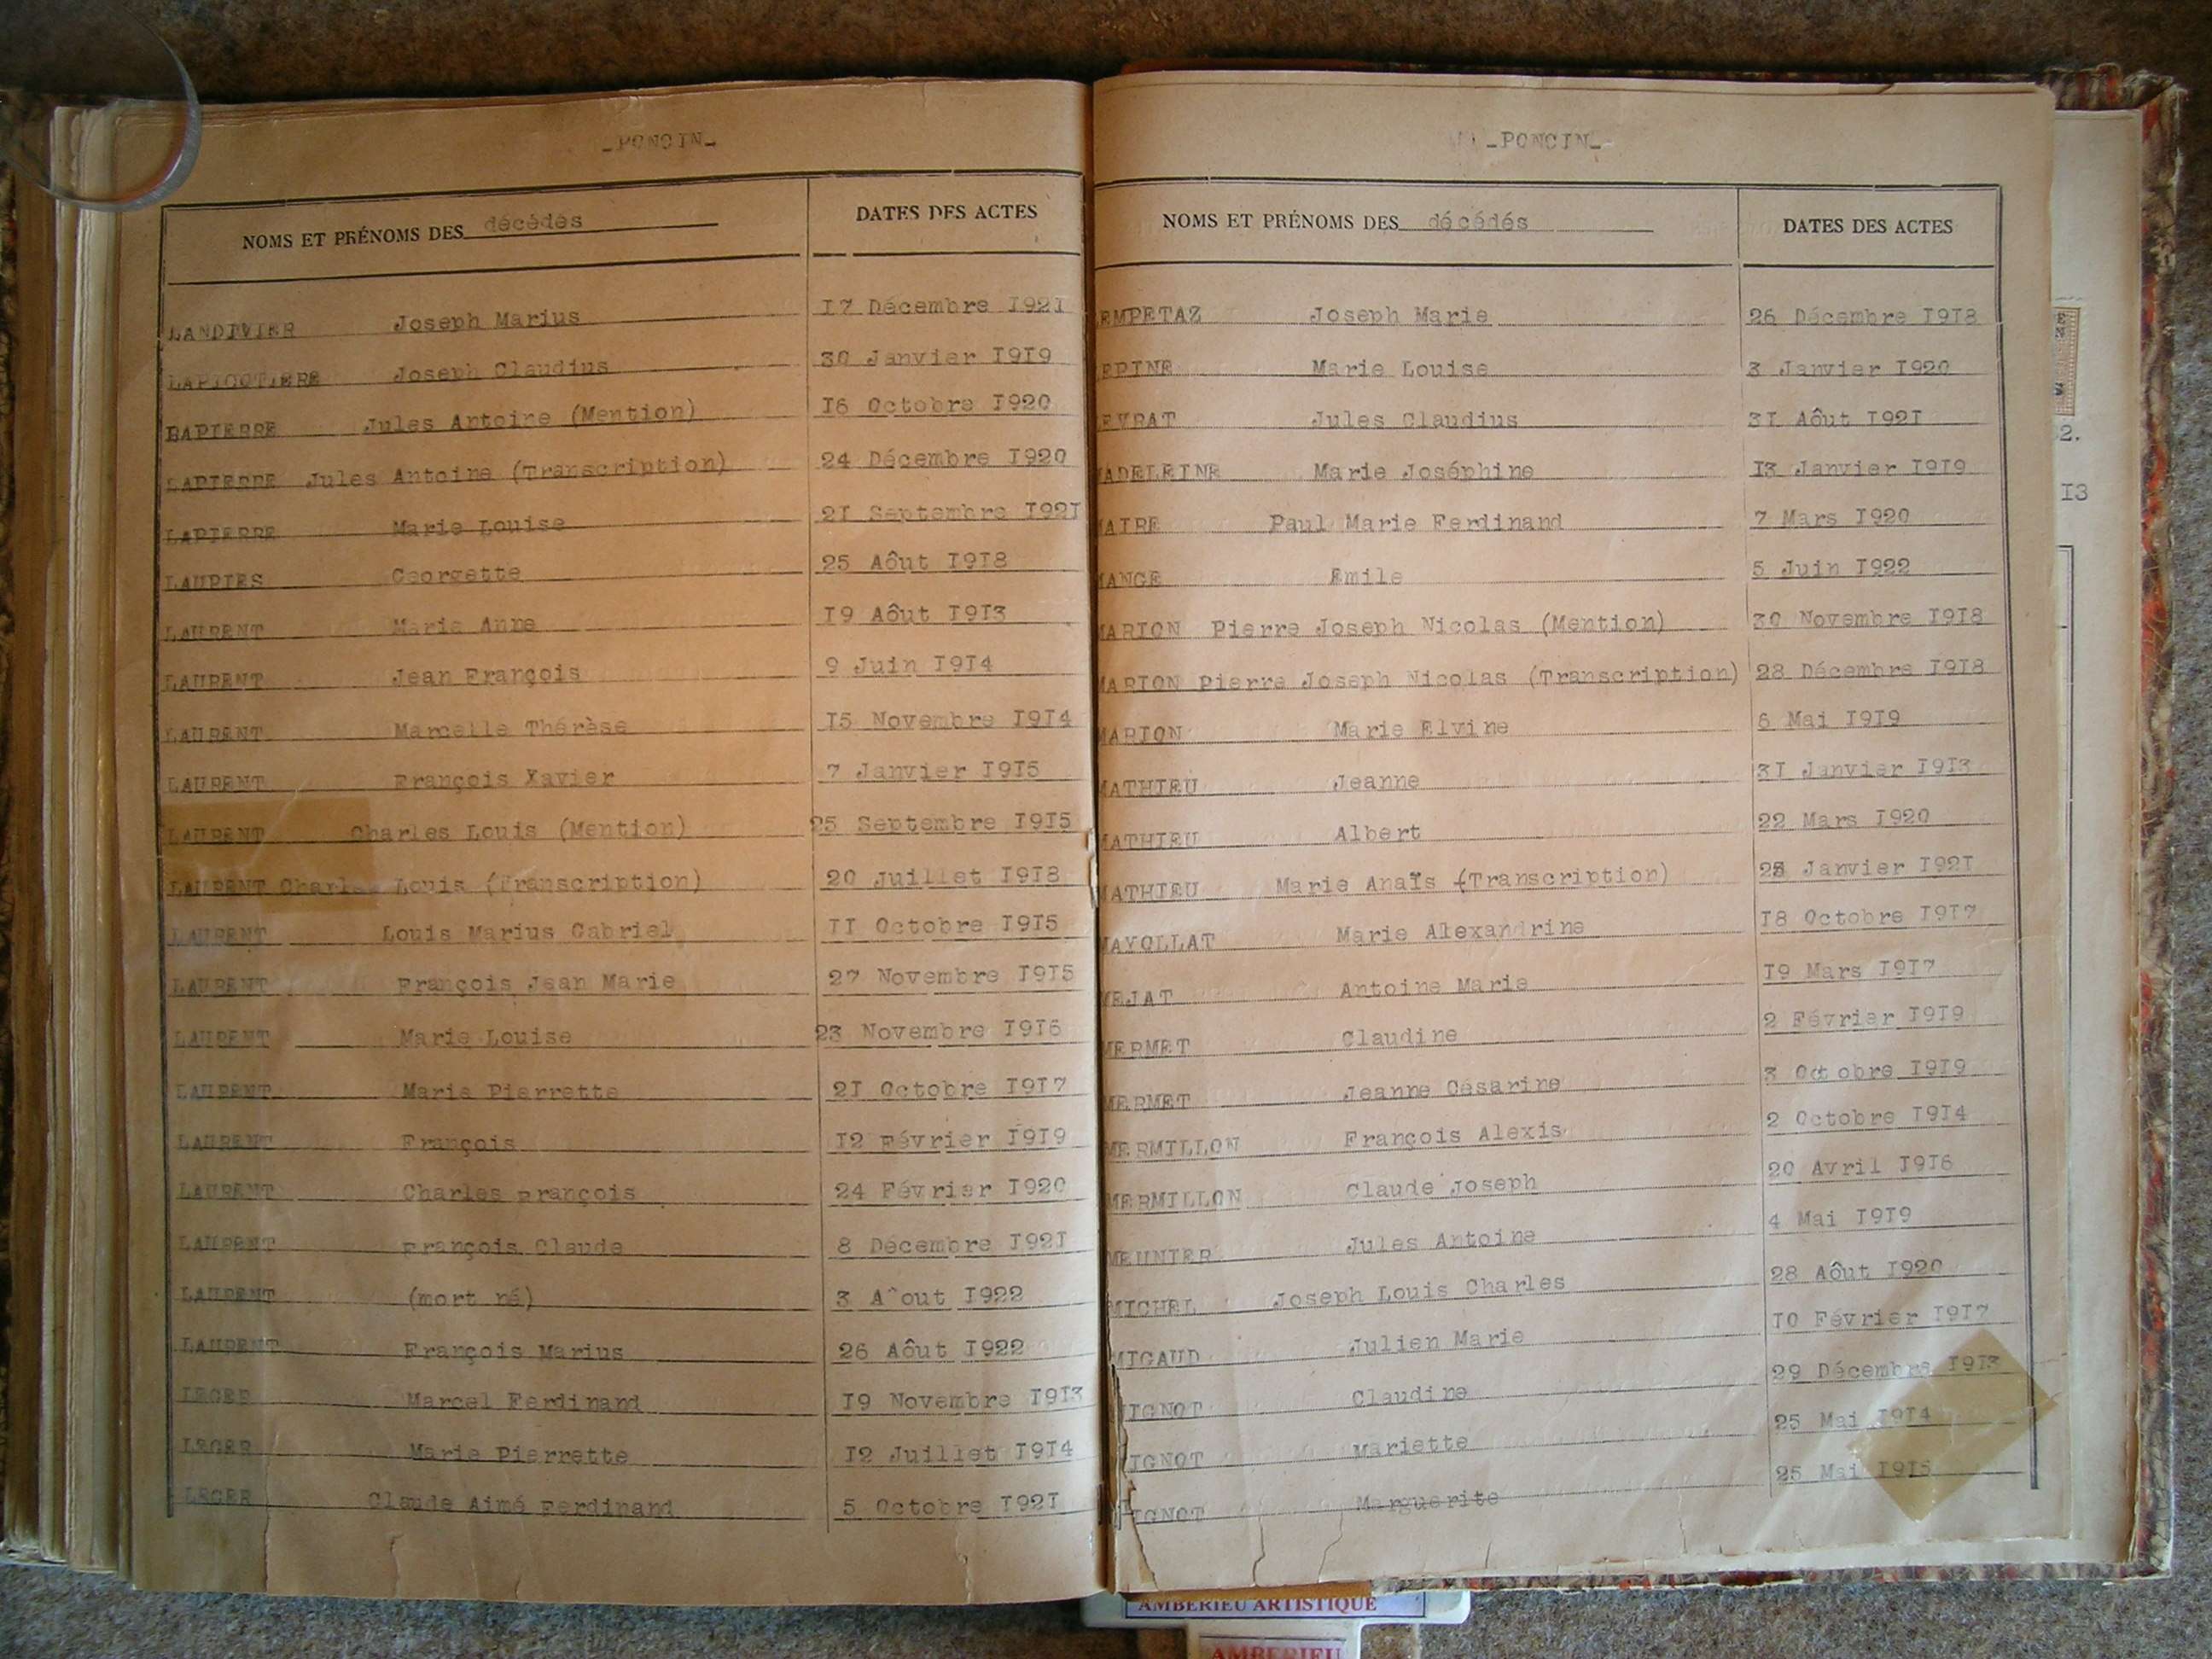 _PONCIN_
NOMS ET PRÉNOMS DES décédés DATES DES ACTES
LANDIVIER Joseph Marius 17 Décembre I92I
LAPICOTIERE Joseph Claudius 30 Janvier I9I9
BAPIERRE Jules Antoine (Mention) I6 Octobre I920
LAPIERRE Jules Antoine (Transcription) 24 Décembre I920
LAPIERRE Marie Louise 2I Septembre I92I
LAURIES Georgette 25 Aôut I9I8
LAURENT Marie Anne I9 Aôut I9I3
LAURENT Jean François 9 Juin I9I4
LAURENT Marcelle Thérèse I5 Novembre I9I4
LAURENT François Xavier 7 Janvier I9I5
LAURENT Charles Louis (Mention) 25 Septembre I9I5
LAURENT Charles Louis (Transcription) 20 Juillet I9I8
LAURENT Louis Marius Gabriel II Octobre I9I5
LAURENT François Jean Marie 27 Novembre I9I5
LAURENT Marie Louise 23 Novembre I9I6
LAURENT Marie Pierrette 2I Octobre I9I7
LAURENT François I2 Février I9I9
LAURENT Charles François 24 Février I920
LAURENT François Claude 8 Décembre I92I
LAURENT (mort né) 3 A^out I922
LAURENT François Marius 26 Aôut I922
LEGER Marcel Ferdinand I9 Novembre I9I3
LEGER Marie Pierrette I2 Juillet I9I4
LEGER Claude Aimé Ferdinand 5 Octobre I92I
_PONCIN_
NOMS ET PRÉNOMS DES décédés DATES DES ACTES
EMPETAZ Joseph Marie 26 Décembre I9I8
EPINE Marie Louise 3 Janvier I920
EVRAT Jules Claudius 3I Aôut I92I
MADELEINE Marie Joséphine I3 Janvier I9I9
MAIRE Paul Marie Ferdinand 7 Mars I920
MANGE Emile 5 Juin I922
MARION Pierre Joseph Nicolas (Mention) 30 Novembre I9I8
MARION Pierre Joseph Nicolas (Transcription) 28 Décembre I9I8
MARION Marie Elvine 6 Mai I9I9
MATHIEU Jeanne 3I Janvier I9I3
MATHIEU Albert 22 Mars I920
MATHIEU Marie Anaïs (Transcription) Janvier I92I
MAYOLLAT Marie Alexandrine I8 Octobre I9I7
MEJAT Antoine Marie I9 Mars I9I7
MERMET Claudine 2 Février I9I9
MERMET Jeanne Césarine 3 Octobre I9I9
MERMILLON François Alexis 2 Octobre I9I4
MERMILLON Claude Joseph 20 Avril I9I6
MEUNIER Jules Antoine 4 Mai I9I9
MICHEL Joseph Louis Charles 28 Aôut I920
MIGAUD Julien Marie I0 Février I9I7
IGNOT Claudine 29 Décembre I9I3
IGNOT Mariette 25 Mai I9I4
IGNOT Marguerite 25 Mai I9I5
2.
I3
AMBERIEU ARTISTIQUE
AMBERIEU